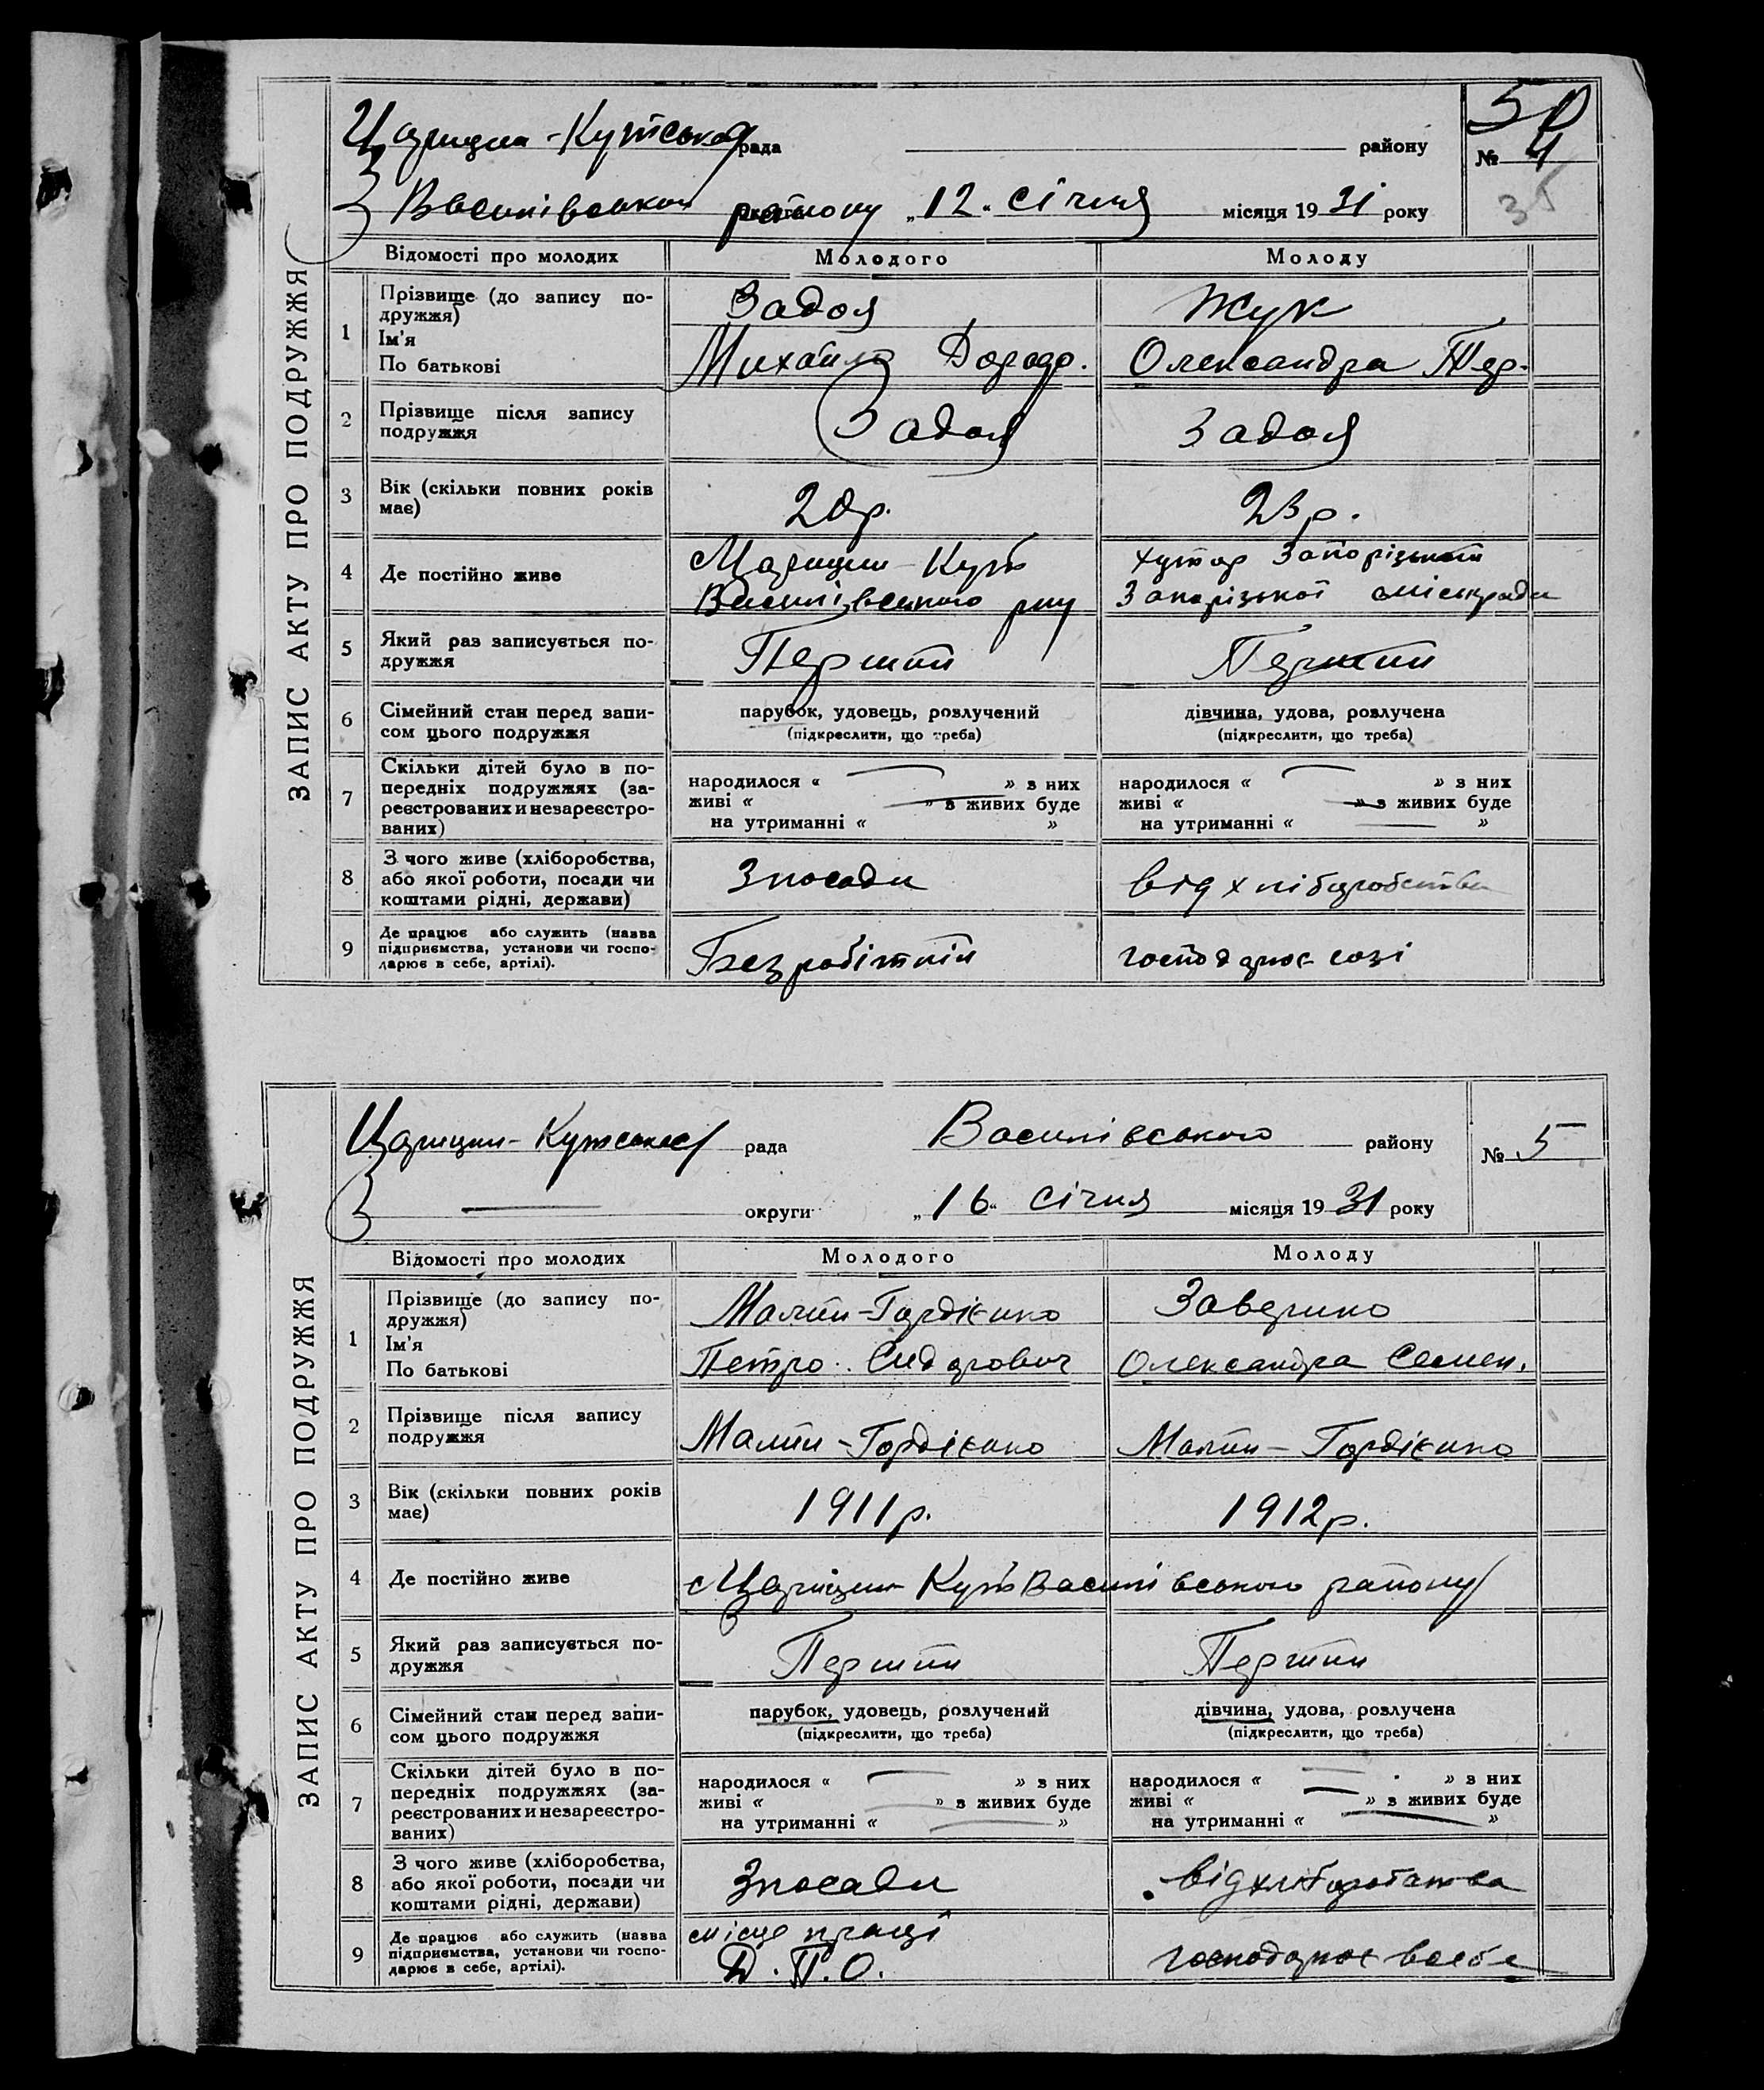 50
Царицин-Кутська рада району № 4
35
Василівського району „12" січня місяця 1931 року
ЗАПИС АКТУ ПРО ПОДРУЖЖЯ
Відомості про молодих Молодого Молоду
1 Прізвище (до запису по-
дружжя) Задоя Жук
Ім'я
По батькові Михайло Олександра
2 Прізвище після запису
подружжя Задоя Задоя
3 Вік (скільки повних років
має) 20р. 23р.
4 Де постійно живе Царицин-Кут хутор
Василівського р-ну Запорізької міськради
5 Який раз записується по-
дружжя Перший Перший
6 Сімейний стан перед запи-
сом цього подружжя парубок, удовець, розлучений дівчина, удова, розлучена
(підкреслити, що треба) (підкреслити, що треба)
7 Скільки дітей було в по-
передніх подружжях (за-
реєстрованих и незареєстро-
ваних)
народилося « » з них народилося « » з них
живі « » з живих буде живі « » з живих буде
на утриманні « » на утриманні « »
8 З чого живе (хліборобства,
або якої роботи, посади чи
коштами рідні, держави) З посади від хліборобства
9 Де працює або служить (назва
підприємства, установи чи госпо-
дарює в себе, артілі). Безробітній господарює
Царицин-Кутська рада Василівського району № 5
— округи „16" січня місяця 1931 року
ЗАПИС АКТУ ПРО ПОДРУЖЖЯ
Відомості про молодих Молодого Молоду
1 Прізвище (до запису по-
дружжя) Малий-Гордієнко Заверико
Ім'я
По батькові Петро Сидорович Олександра Семен.
2 Прізвище після запису
подружжя Малий-Гордієнко Малий-Гордієнко
3 Вік (скільки повних років
має) 1911р. 1912р.
4 Де постійно живе Царицин-Кут Василівського району
5 Який раз записується по-
дружжя Перший Перший
6 Сімейний стан перед запи-
сом цього подружжя парубок, удовець, розлучений дівчина, удова, розлучена
(підкреслити, що треба) (підкреслити, що треба)
7 Скільки дітей було в по-
передніх подружжях (за-
реєстрованих и незареєстро-
ваних)
народилося « » з них народилося « » з них
живі « » з живих буде живі « » з живих буде
на утриманні « » на утриманні « »
8 З чого живе (хліборобства,
або якої роботи, посади чи
коштами рідні, держави) З посади від хліборобства
9 Де працює або служить (назва
підприємства, установи чи госпо-
дарює в себе, артілі). місце праці
Д. П. О. господарює в себе